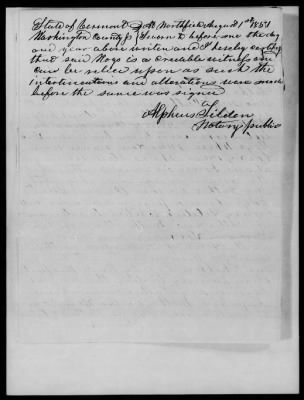 State of Vermont } At Northfield August 1st 1851
Washington County } Sworn to before me the day
and year above written and I hereby certify
that said Hogo is a credible witness and
can be relied upon as such the
interlineations and alterations were made
before the same was signed
Alpheus Tilden
Notary public